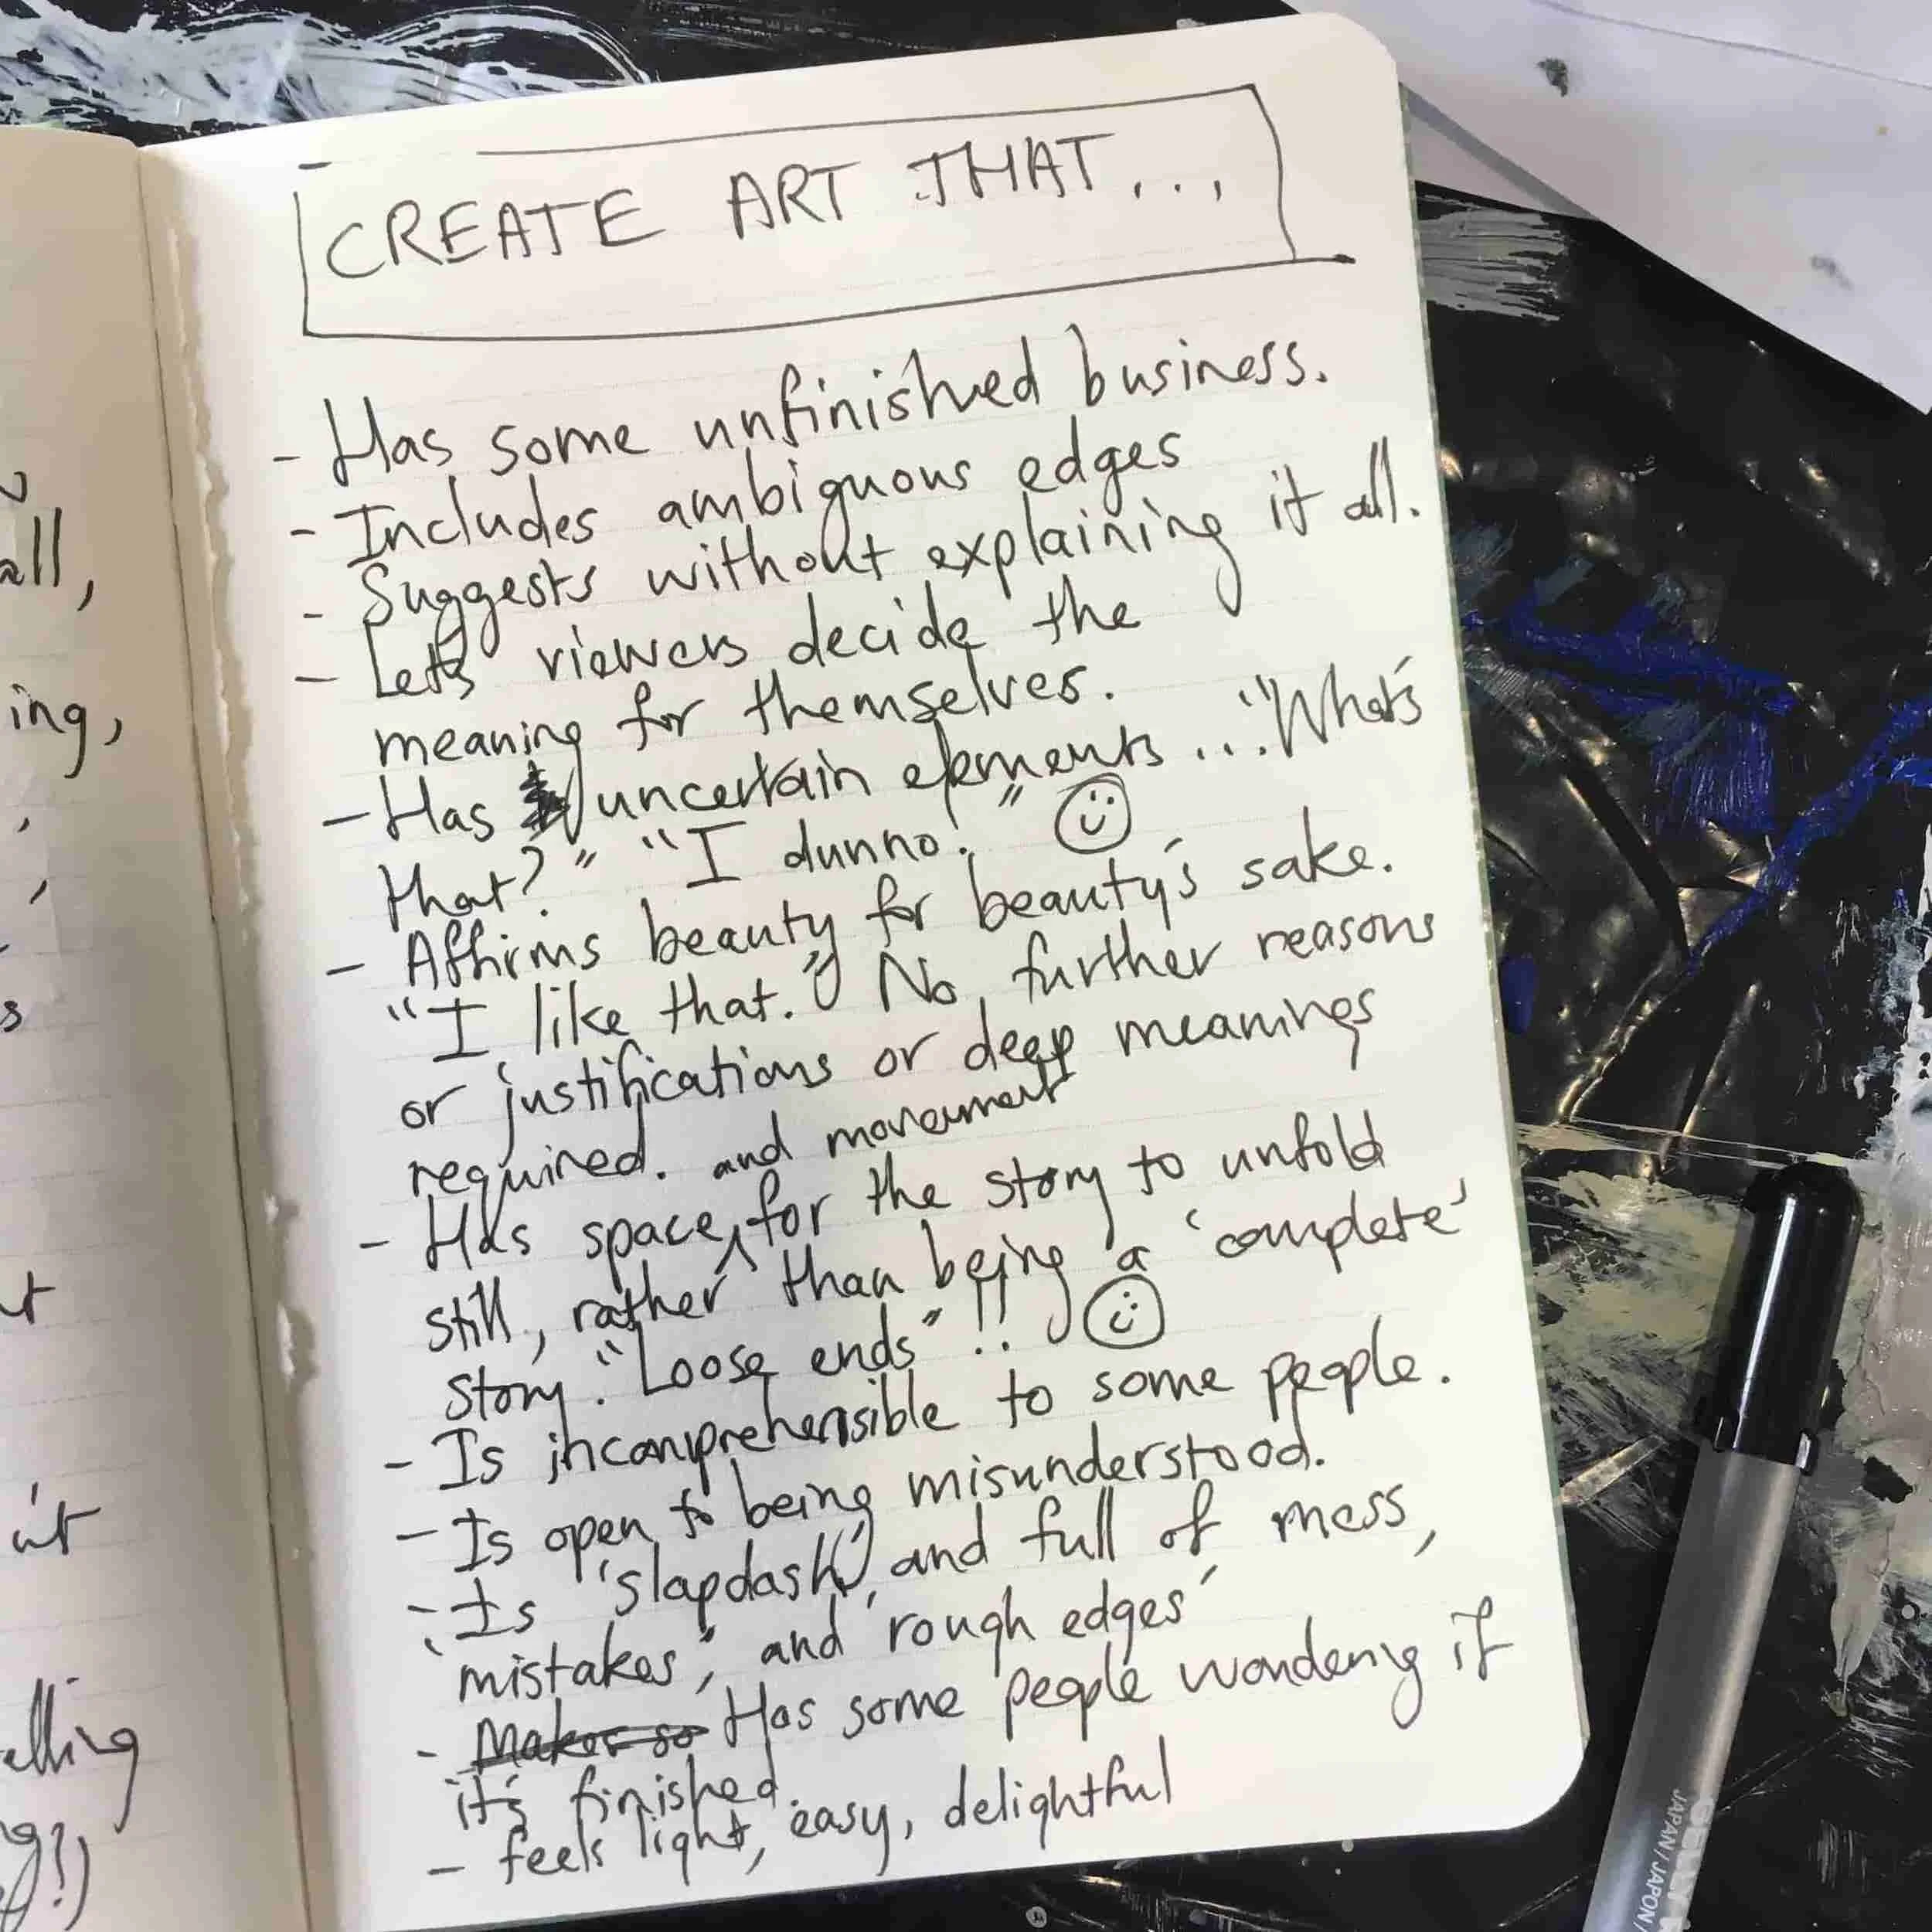 CREATE ART THAT...
- Has some unfinished business.
- Includes ambiguous edges
- Suggests without explaining it all.
- Lets viewers decide the
meaning for themselves.
- Has uncertain elements... "What's
that?" "I dunno!" ☺
- Affirms beauty for beauty's sake.
"I like that." No further reasons
or justifications or deep meanings
required.
and movement
- Has space ^ for the story to unfold
still, rather than being a 'complete'
story. "Loose ends"!! ☺
- Is incomprehensible to some people.
- Is open to being misunderstood.
- Is 'slapdash', and full of mess,
'mistakes', and 'rough edges'
- Makes so Has some people wondering if
it's finished.
- feels light, easy, delightful
all,
ing,
s
it
elling
g!)
JAPAN / JAPON /